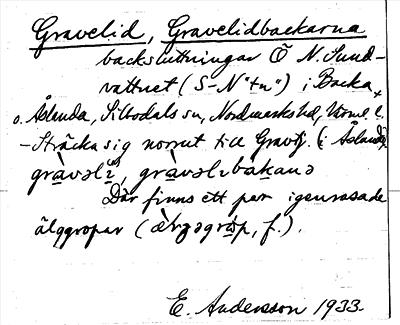 Gravelid, Gravelidbackarna
backsluttningar Ö N. Sund-
vattnet (S-N "tn") i Backa
o. Åslanda, Silbodals sn, Nordmarks hd, Värml. l.
- Sträcka sig norrut till Gravtj. (i Åslanda)
gràvəlɩ, gràvəlɩbakanə
Där finns ett par igenrasade
älggropar (                , f.).
E. Andersson 1933.